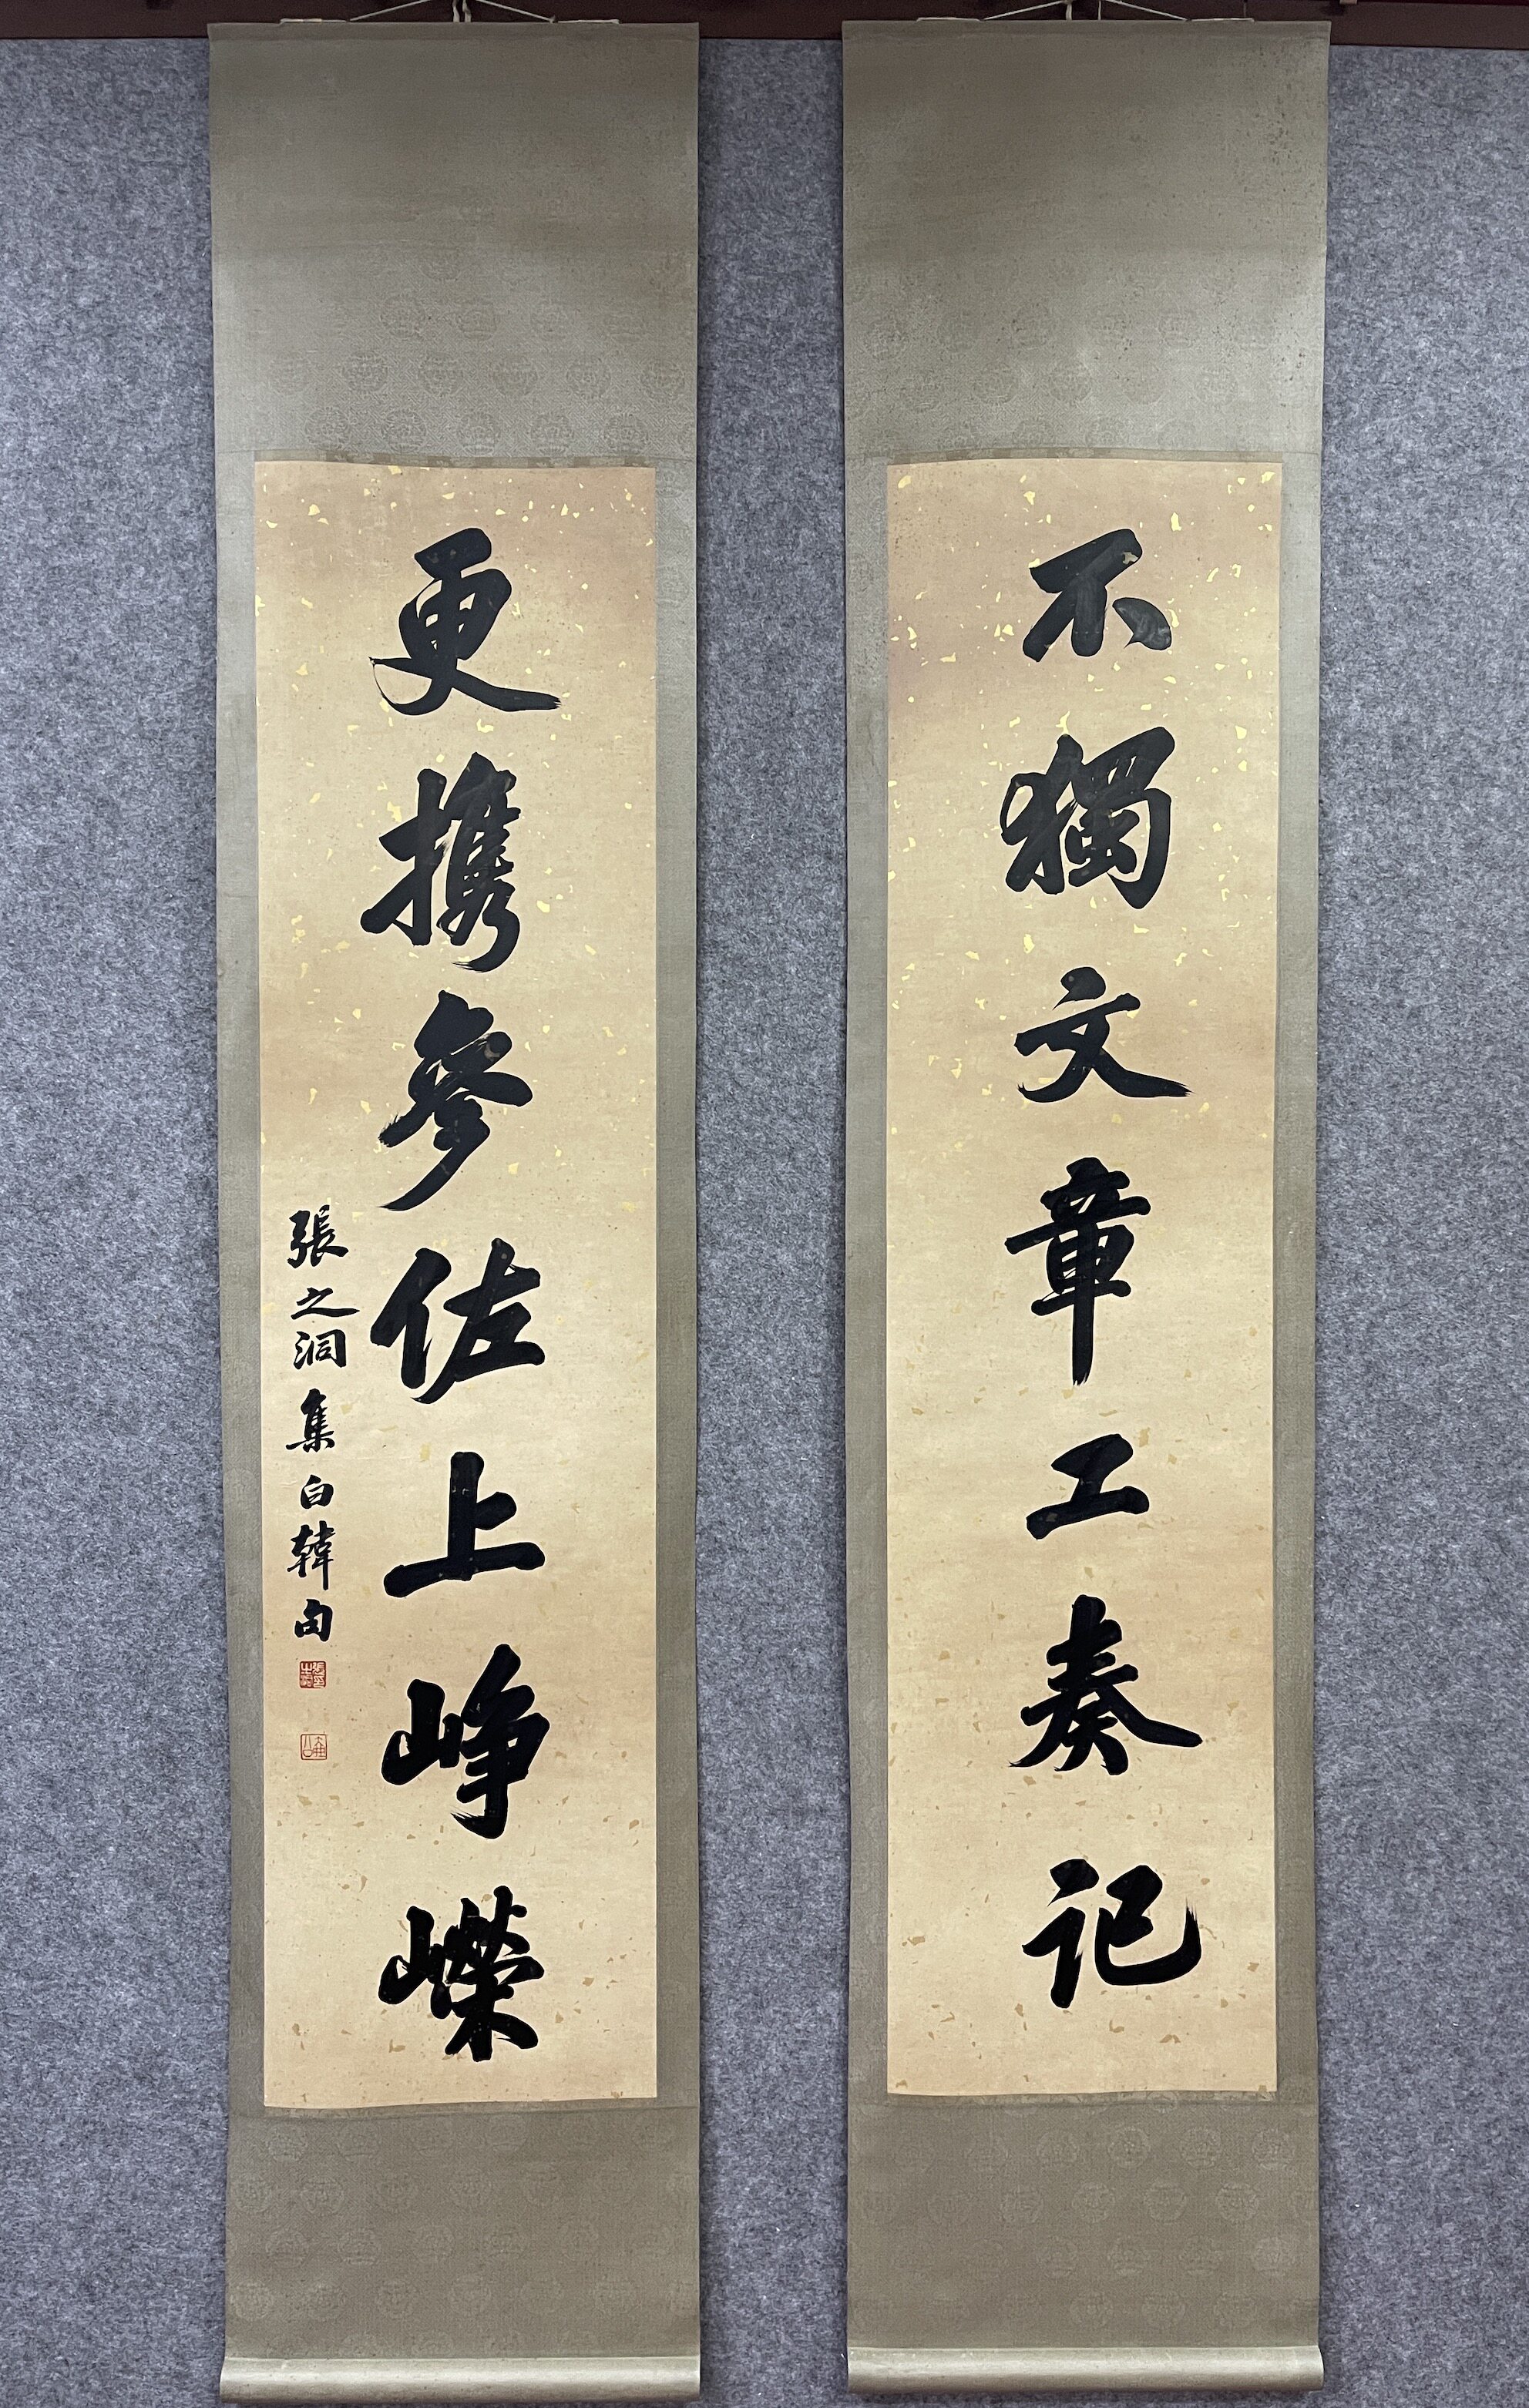 不獨文章工奏記
更攜參佐上崢嶸
張之洞集白韓句